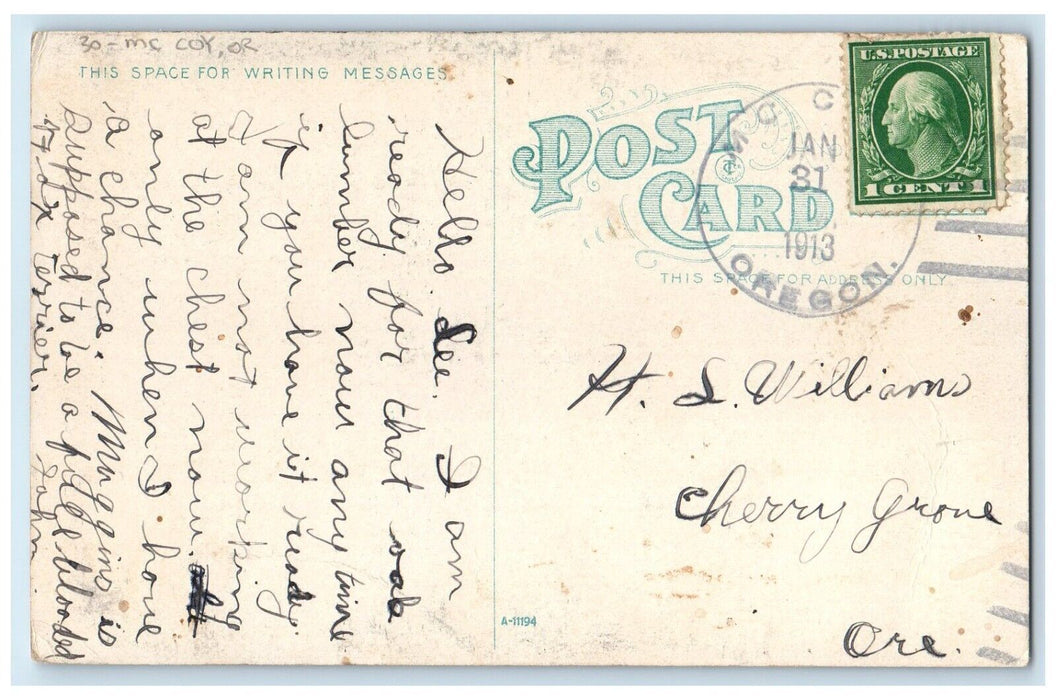 30 - MC COY, OR
THIS SPACE FOR WRITING MESSAGES
Hello Lee. I am
ready for that oak
lumber now any time
if you have it ready.
I am not working
at the chest now.
only when I have
a chance. Muggins is
supposed to be a full blooded
fox terrier.
John
POST CARD
THIS SPACE FOR ADDRESS ONLY
MC C
JAN
31
1913
OREGON.
U.S. POSTAGE
1 CENT 1
H. L. Williams
Cherry Grove
Ore.
A-11194